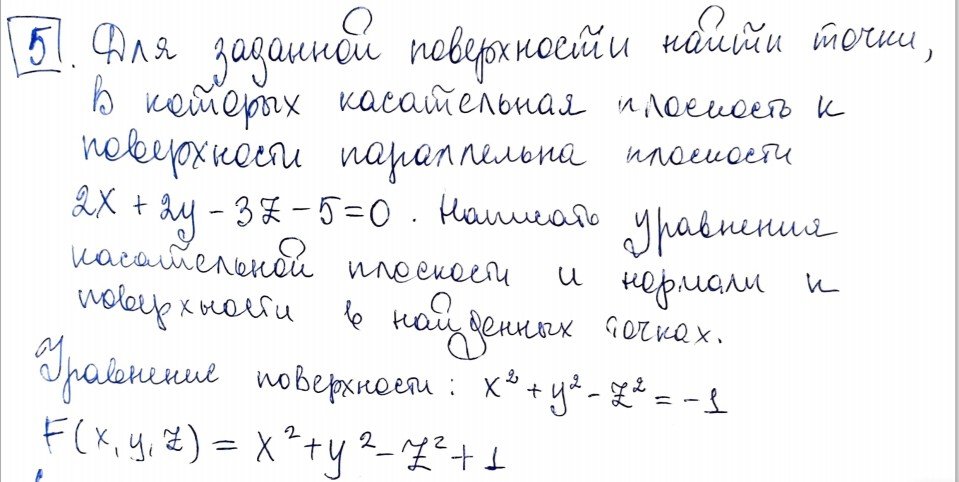 5. Для заданной поверхности найти точки,
в которых касательная плоскость к
поверхности параллельна плоскости
2x + 2y - 3z - 5 = 0. Написать уравнения
касательной плоскости и нормали к
поверхности в найденных точках.
Уравнение поверхности: x² + y² - z² = -1
F(x, y, z) = x² + y² - z² + 1